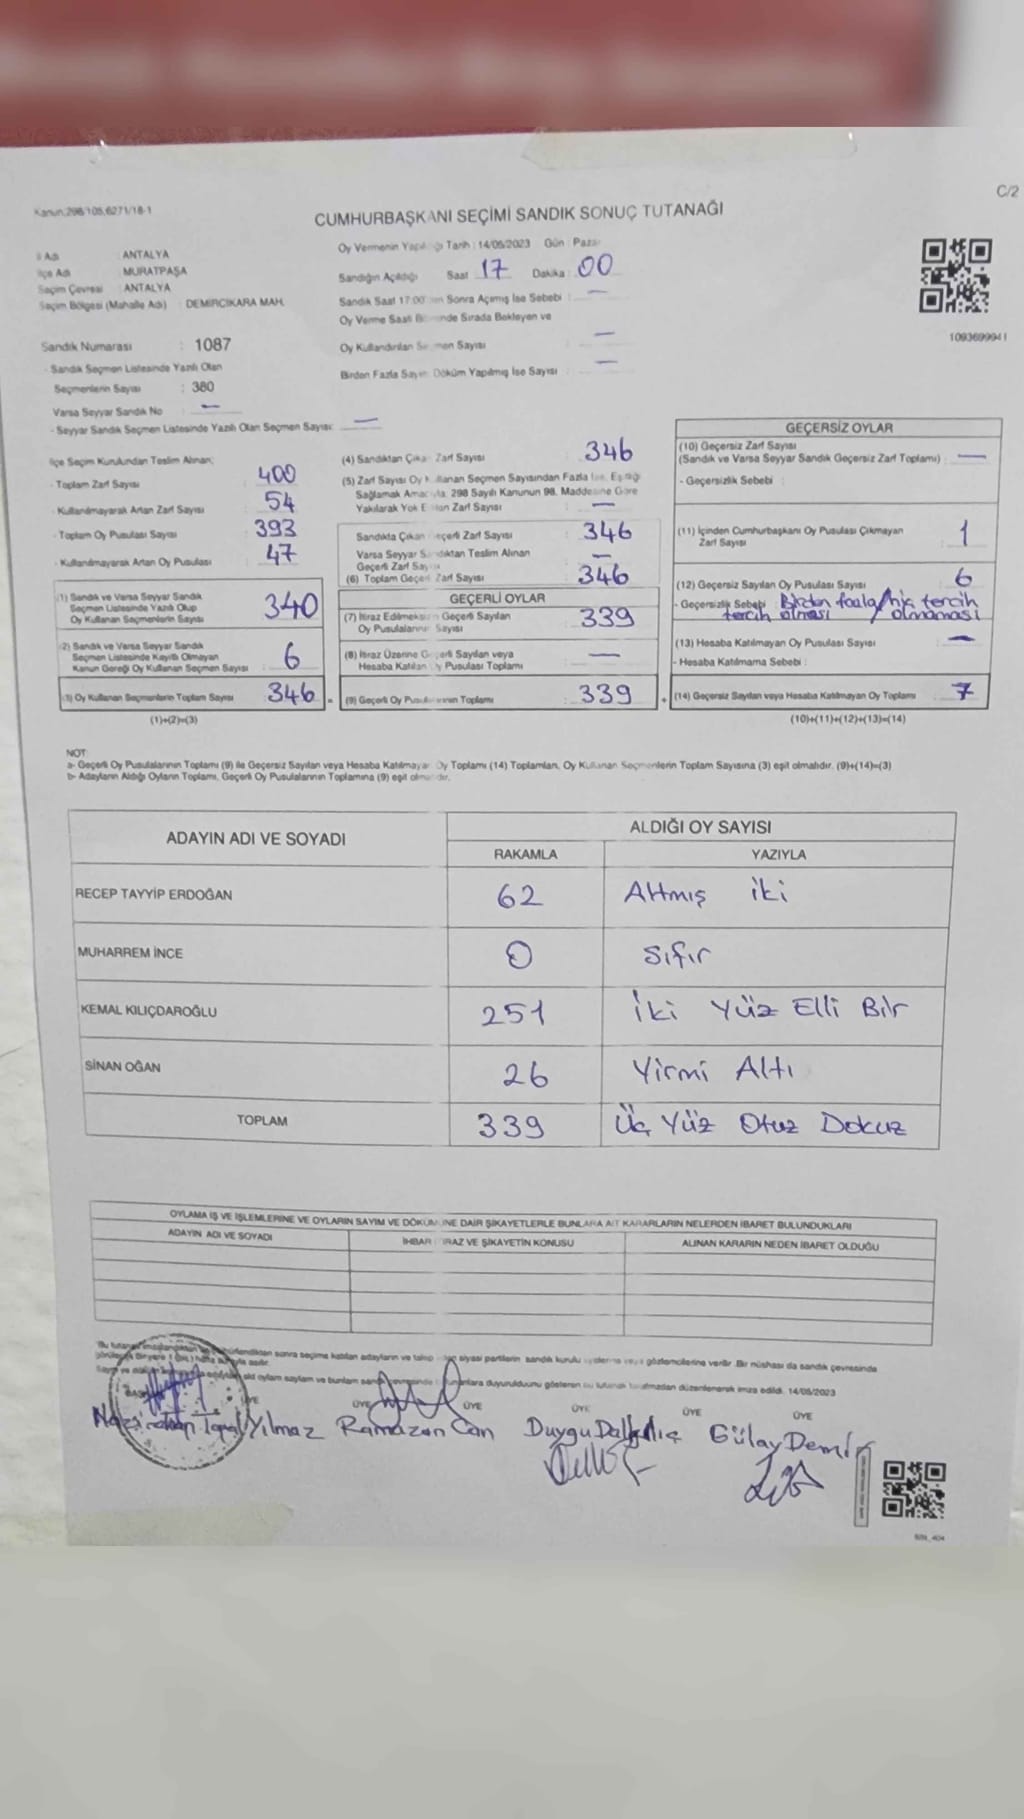 C/2
Kanun;298/105,6271/18-1
CUMHURBAŞKANI SEÇİMİ SANDIK SONUÇ TUTANAĞI
İl Adı : ANTALYA
İlçe Adı : MURATPAŞA
Seçim Çevresi : ANTALYA
Seçim Bölgesi (Mahalle Adı) : DEMİRCİKARA MAH.
Oy Vermenin Yapıldığı Tarih : 14/05/2023 Gün : Pazar
Sandığın Açıldığı Saat : 17 Dakika : 00
Sandık Saat 17:00'den Sonra Açımış İse Sebebi : —
Oy Verme Saati Bitiminde Sırada Bekleyen ve
Oy Kullandırılan Seçmen Sayısı : —
Birden Fazla Sayım Döküm Yapılmış İse Sayısı : —
1093699941
Sandık Numarası : 1087
- Sandık Seçmen Listesinde Yazılı Olan
Seçmenlerin Sayısı : 380
Varsa Seyyar Sandık No : —
- Seyyar Sandık Seçmen Listesinde Yazılı Olan Seçmen Sayısı: —
İlçe Seçim Kurulundan Teslim Alınan;
- Toplam Zarf Sayısı : 400
- Kullanılmayarak Artan Zarf Sayısı : 54
- Toplam Oy Pusulası Sayısı : 393
- Kullanılmayarak Artan Oy Pusulası : 47
(1) Sandık ve Varsa Seyyar Sandık
Seçmen Listesinde Yazılı Olup
Oy Kullanan Seçmenlerin Sayısı : 340
(2) Sandık ve Varsa Seyyar Sandık
Seçmen Listesinde Kayıtlı Olmayan
Kanun Gereği Oy Kullanan Seçmen Sayısı : 6
(3) Oy Kullanan Seçmenlerin Toplam Sayısı : 346
(1)+(2)=(3)
(4) Sandıktan Çıkan Zarf Sayısı : 346
(5) Zarf Sayısı Oy Kullanan Seçmen Sayısından Fazla İse, Eşitliği
Sağlamak Amacıyla, 298 Sayılı Kanunun 98. Maddesine Göre
Yakılarak Yok Edilen Zarf Sayısı : —
Sandıkta Çıkan Geçerli Zarf Sayısı : 346
Varsa Seyyar Sandıktan Teslim Alınan
Geçerli Zarf Sayısı : —
(6) Toplam Geçerli Zarf Sayısı : 346
GEÇERLİ OYLAR
(7) İtiraz Edilmeksizin Geçerli Sayılan
Oy Pusulalarının Sayısı : 339
(8) İtiraz Üzerine Geçerli Sayılan veya
Hesaba Katılan Oy Pusulası Toplamı : —
(9) Geçerli Oy Pusulalarının Toplamı : 339
GEÇERSİZ OYLAR
(10) Geçersiz Zarf Sayısı
(Sandık ve Varsa Seyyar Sandık Geçersiz Zarf Toplamı) : —
- Geçersizlik Sebebi :
(11) İçinden Cumhurbaşkanı Oy Pusulası Çıkmayan
Zarf Sayısı : 1
(12) Geçersiz Sayılan Oy Pusulası Sayısı : 6
- Geçersizlik Sebebi : Birden fazla/hiç tercih
tercih olması olmaması
(13) Hesaba Katılmayan Oy Pusulası Sayısı : —
- Hesaba Katılmama Sebebi :
(14) Geçersiz Sayılan veya Hesaba Katılmayan Oy Toplamı : 7
(10)+(11)+(12)+(13)=(14)
NOT:
a- Geçerli Oy Pusulalarının Toplamı (9) ile Geçersiz Sayılan veya Hesaba Katılmayan Oy Toplamı (14) Toplamları, Oy Kullanan Seçmenlerin Toplam Sayısına (3) eşit olmalıdır. (9)+(14)=(3)
b- Adayların Aldığı Oyların Toplamı, Geçerli Oy Pusulalarının Toplamına (9) eşit olmalıdır.
ADAYIN ADI VE SOYADI
ALDIĞI OY SAYISI
RAKAMLA YAZIYLA
RECEP TAYYİP ERDOĞAN 62 Altmış iki
MUHARREM İNCE 0 Sıfır
KEMAL KILIÇDAROĞLU 251 İki Yüz Elli Bir
SİNAN OĞAN 26 Yirmi Altı
TOPLAM 339 Üç Yüz Otuz Dokuz
OYLAMA İŞ VE İŞLEMLERİNE VE OYLARIN SAYIM VE DÖKÜMÜNE DAİR ŞİKAYETLERLE BUNLARA AİT KARARLARIN NELERDEN İBARET BULUNDUKLARI
ADAYIN ADI VE SOYADI İHBAR İTİRAZ VE ŞİKAYETİN KONUSU ALINAN KARARIN NEDEN İBARET OLDUĞU
sonra seçime katılan adayların ve talep eden siyasi partilerin sandık kurulu üyelerine veya gözlemcilerine verilir. Bir nüshası da sandık çevresinde
görülecek bir yere asılır.
düzenlenerek imza edildi. 14/05/2023
ÜYE ÜYE ÜYE ÜYE ÜYE ÜYE
Yılmaz Ramazan Can Duygu Dalkılıç Gülay Demir